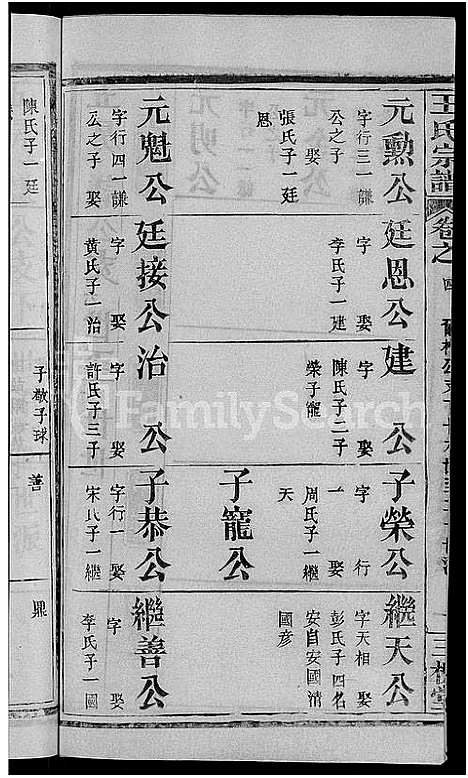 王氏宗譜
卷之四
三槐堂
元勳公
字行三一謙
公之子 娶
張氏子一廷
恩
廷恩公
字 娶
李氏子一建
建 公
字 娶
陳氏子二子
榮子寵
子榮公
字 行
一 娶
周氏子一繼
天
繼天公
字天相 娶
彭氏子四名
安自安國清
國彥
子寵公
元魁公
字行四一謙
公之子 娶
陳氏子一廷
廷接公
字 娶
黃氏子一治
治 公
字 娶
許氏子三子
子敬子球
子恭公
字行一娶
宋氏子一繼
善
繼善公
字 娶
李氏子一國
鼎
FamilySearch